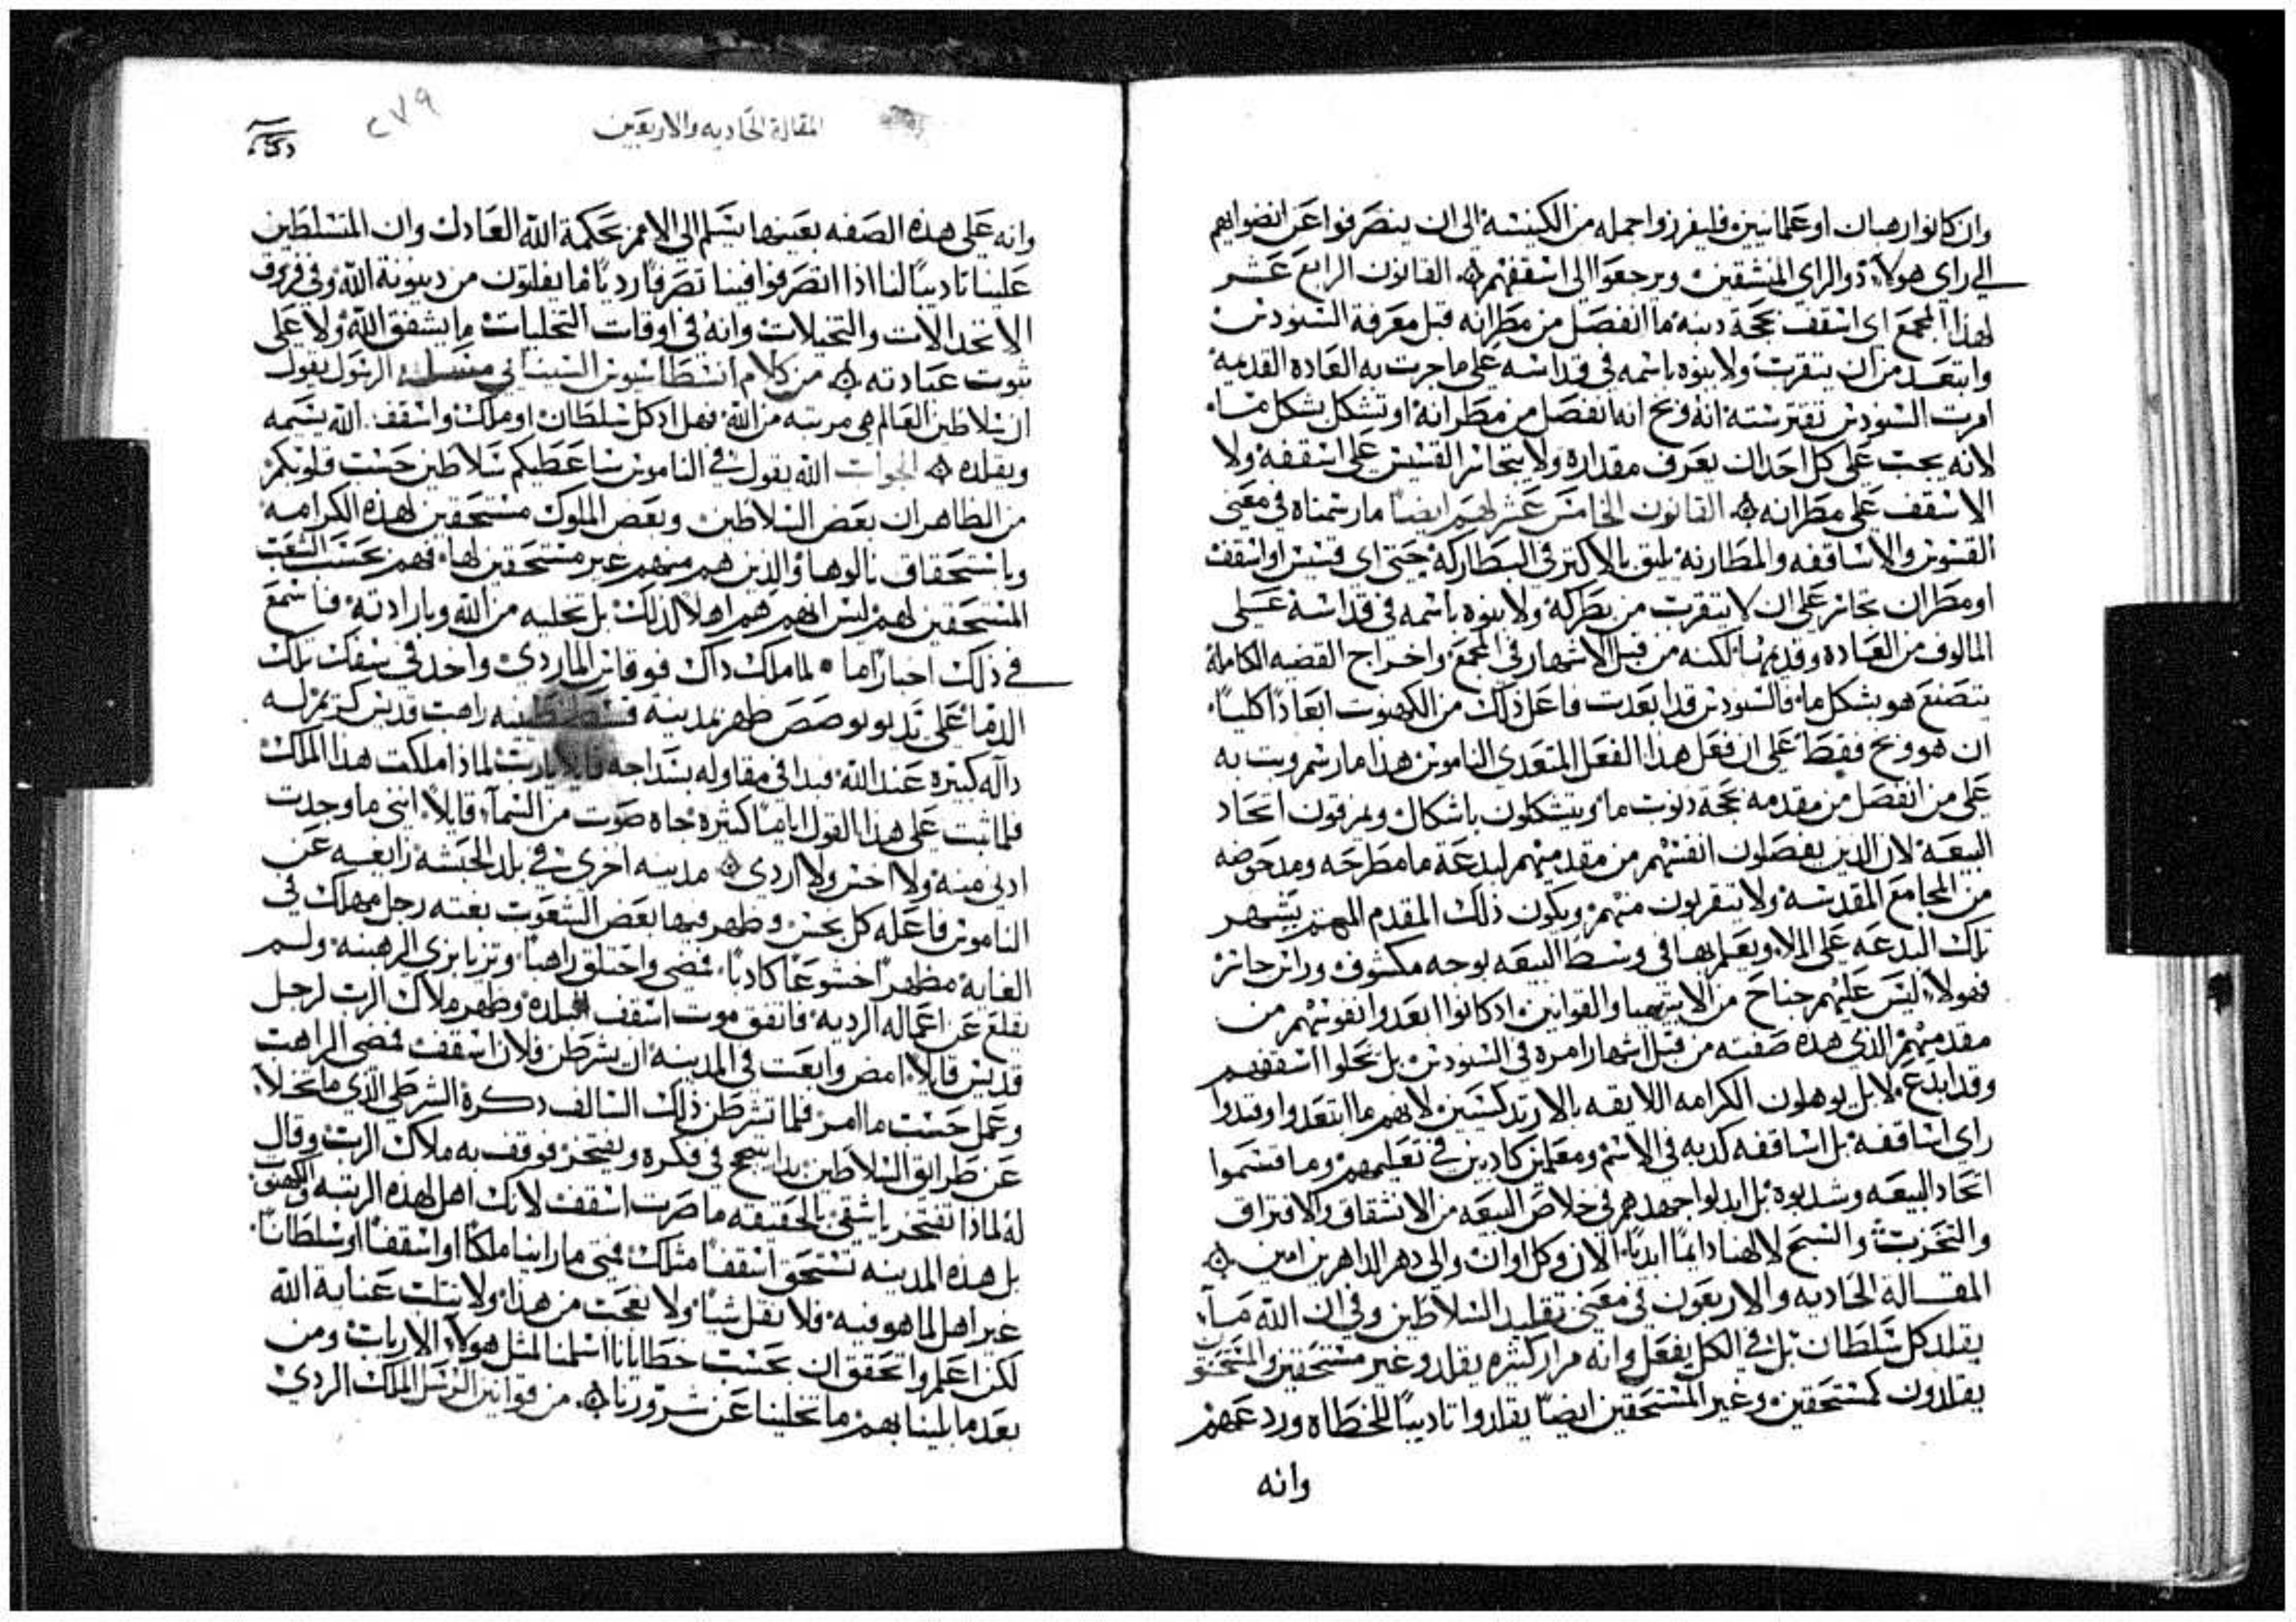 وان كانوا رهبان او علمانيين فليفرزوا جمله من الكنيسة الى ان ينصرفوا عن انضوايهم
الى راى هولاء ذوالراى المنشقين ويرجعوا الى اسقفهم القانون الرابع عشر
لهذا المجمع اى اسقف بحجة دينه ما انفصل من مطرانه قبل معرفة السنودس
وابتعد من ان يتقرب ولا ينوه باسمه في قداسه على ما جرت به العاده القديمة
امرت السنودس تقترسته انه وبح انه انفصل من مطرانه او تشكل بشكل ما
لانه يجب على كل احد ان يعرف مقداره ولا يتحاتر القسيس على اسقفه ولا
الاسقف على مطرانه القانون الخامس عشر لهم ايضا ما رسمناه في معنى
القسوس والاساقفه والمطارنه يليق بالاكثر في البطاركة حتى اى قسيس او اسقف
او مطران تجاسر على ان لا يتقرب من بطركه ولا ينوه باسمه في قداسه على
المالوف من العاده وقديمها لكنه من قبل الاشهار في المجمع واخراج القضيه الكاملة
يتصنع هو بشكل ما فالسنودس قد ابعدت فاعل ذلك من الكهنوت ابعادا كليا
ان هو وبح فقط على ان فعل هذا الفعل المتعدى الناموس هذا ما رسم وبت به
على من انفصل من مقدمه بحجة دنوب ما ويتشكلون باشكال ويمزقون اتحاد
البيعة لان الدين يفصلون انفسهم من مقدميهم لبدعة ما مطرحه ومدحوضه
من المجامع المقدسة ولا يتقربون منهم ويكون ذلك المقدم المهتم يشهر
تلك البدعه على الملا ويعلم بها في وسط البيعه بوجه مكشوف وراس حاسر
فهولاء ليس عليهم جناح من الابتيميا والقوانين اد كانوا ابعدوا نفوسهم من
مقدميهم الذي هذه صفته من قبل اشهار امره في السنودس بل تخلوا اسقفهم
وقد ابدع لا بل يوهلون الكرامه اللايقه بالارتدكسيين لانهم ما ابتعدوا وفندوا
راى اساقفة بل اساقفه كدبه في الاسم ومعلمين كادبين في تعليمهم وما قسموا
اتحاد البيعه وشدبوه بل ابدلوا جهدهم في خلاص البيعه من الانشقاق والافتراق
والتحزب والسبح لالهنا دايما ابديا الان وكل اوان والى دهر الداهرين امين
المقالة الحاديه والاربعون في معنى تقليد السلاطين وفي ان الله ما
يقلد كل سلطان بل في الكل يفعل وانه مرار كثيره يقلد وغير مستحقين والمستحقون
يقلدون كمستحقين وغير المستحقين ايضا يقلدوا تاديبا للخطاه وردعهم
وانه
المقالة الحاديه والاربعين
٢٧٩
وانه على هذه الصفه بعينها يسلم الى الامم بحكمة الله العادل وان المتسلطين
علينا تاديبا لنا اذا انصرفوا فينا تصرفا رديا ما يفلتون من دينونة الله وفي فروق
الانخدالات والتخيلات وانه في اوقات التخليات ما يشفق الله ولا على
ثبوت عبادته من كلام انسطاسيوس السينائي الرسول يقول
ان سلاطين العالم هي مرتبه من الله فهل اد كل سلطان او ملك واسقف الله يسمه
ويقلده الجواب الله يقول في الناموس ساعطيكم سلاطين حسب قلوبكم
من الظاهر ان بعض السلاطين وبعض الملوك مستحقين لهذه الكرامه
وباستحقاق نالوها والذين هم منهم غير مستحقين لها فهم بحسب الشعب
المستحقين لهم ليس انهم هم اهلا لذلك بل تخليه من الله وبارادته فاسمع
في ذلك اخبارا ما لما ملك داك فوقاس المارد واخد في سفك تلك
الدما على يد بونوصص ظهر بمدينه قسطنطينيه راهب قديس كريم له
داله كبيره عند الله فبدا في مقاوله بسداجه قايلا يارب لماذا ملكت هذا الملك
فلما ثبت على هذا القول اياما كثيره جاه صوت من السما قايلا انني ما وجدت
ادنى منه ولا اخس ولا اردى مدينه اخرى في بلد الحبشه زايغه عن
الناموس فاعله كل نجس وظهر فيها بعض الشعوب بغته رجل مهلك في
الغايه مظهرا خشوعا كادبا فمضى واختلق راهبا وتزيا بزى الرهبنه ولم
يقلع عن اعماله الرديه فاتفق موت اسقف البلده وظهر ملاك الرب لرجل
قديس قايلا امض وابعت في المدينه ان يشرطن فلان اسقف فمضى الراهب
وعمل حسب ما امر فلما تشرطن ذلك السالف دكره الشرطى الذي ما تخلا
عن طرايق السلاطين بدا يسبح في فكره ويفتخر فوقف به ملاك الرب وقال
له لماذا تفتخر يا شقي بالحقيقه ما صرت اسقف لانك اهل لهذه الرتبه والكهنوت
بل هذه المدينه تستحق اسقفا مثلك فمتى ما راينا ملكا او اسقفا او سلطانا
غير اهل لما هو فيه فلا نقل شيا ولا نعجب من هذا ولا نتلب عناية الله
لكن اعلم واتحقق ان بحسب خطايانا اسلمنا لمثل هولاء الارباب ومن
بعد ما بلينا بهم ما تخلينا عن شرورنا من قوانين الرسل الملك الردي